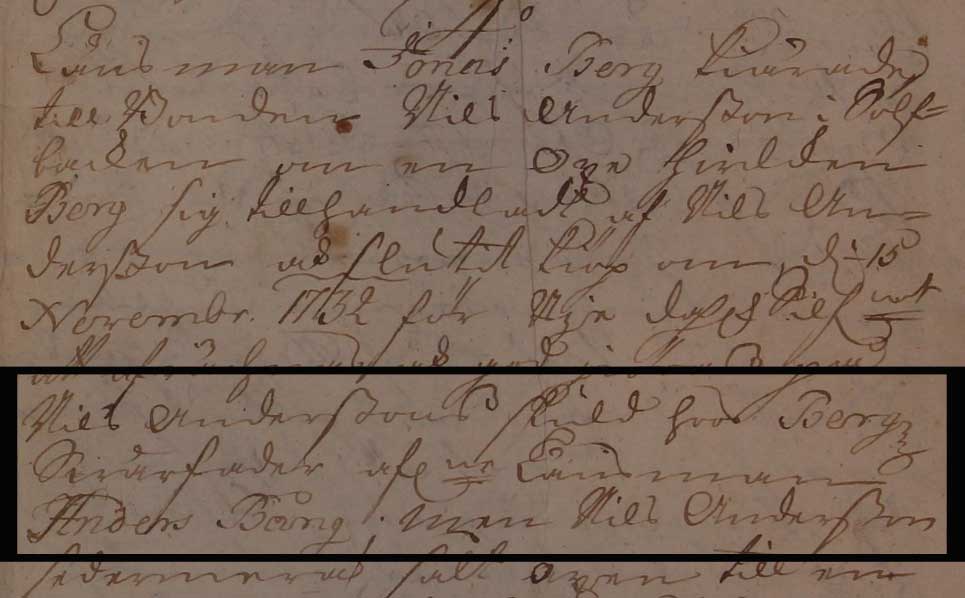 Länsman Jonas Berg kiärade
till Bonden Nils Anderßon i Solf-
backen om en Oxe hvilcken
Berg sig tillhandladt af Nils An-
derßon och slutit kiöp om, d. 15
Novembr. 1732 för Nije dal Silf mt
Nils Anderßons skuld hoos Bergz
Svärfader afl ne Länsman
Anders Bång. men Nils Anderßon
sedermera sålt oxen till en